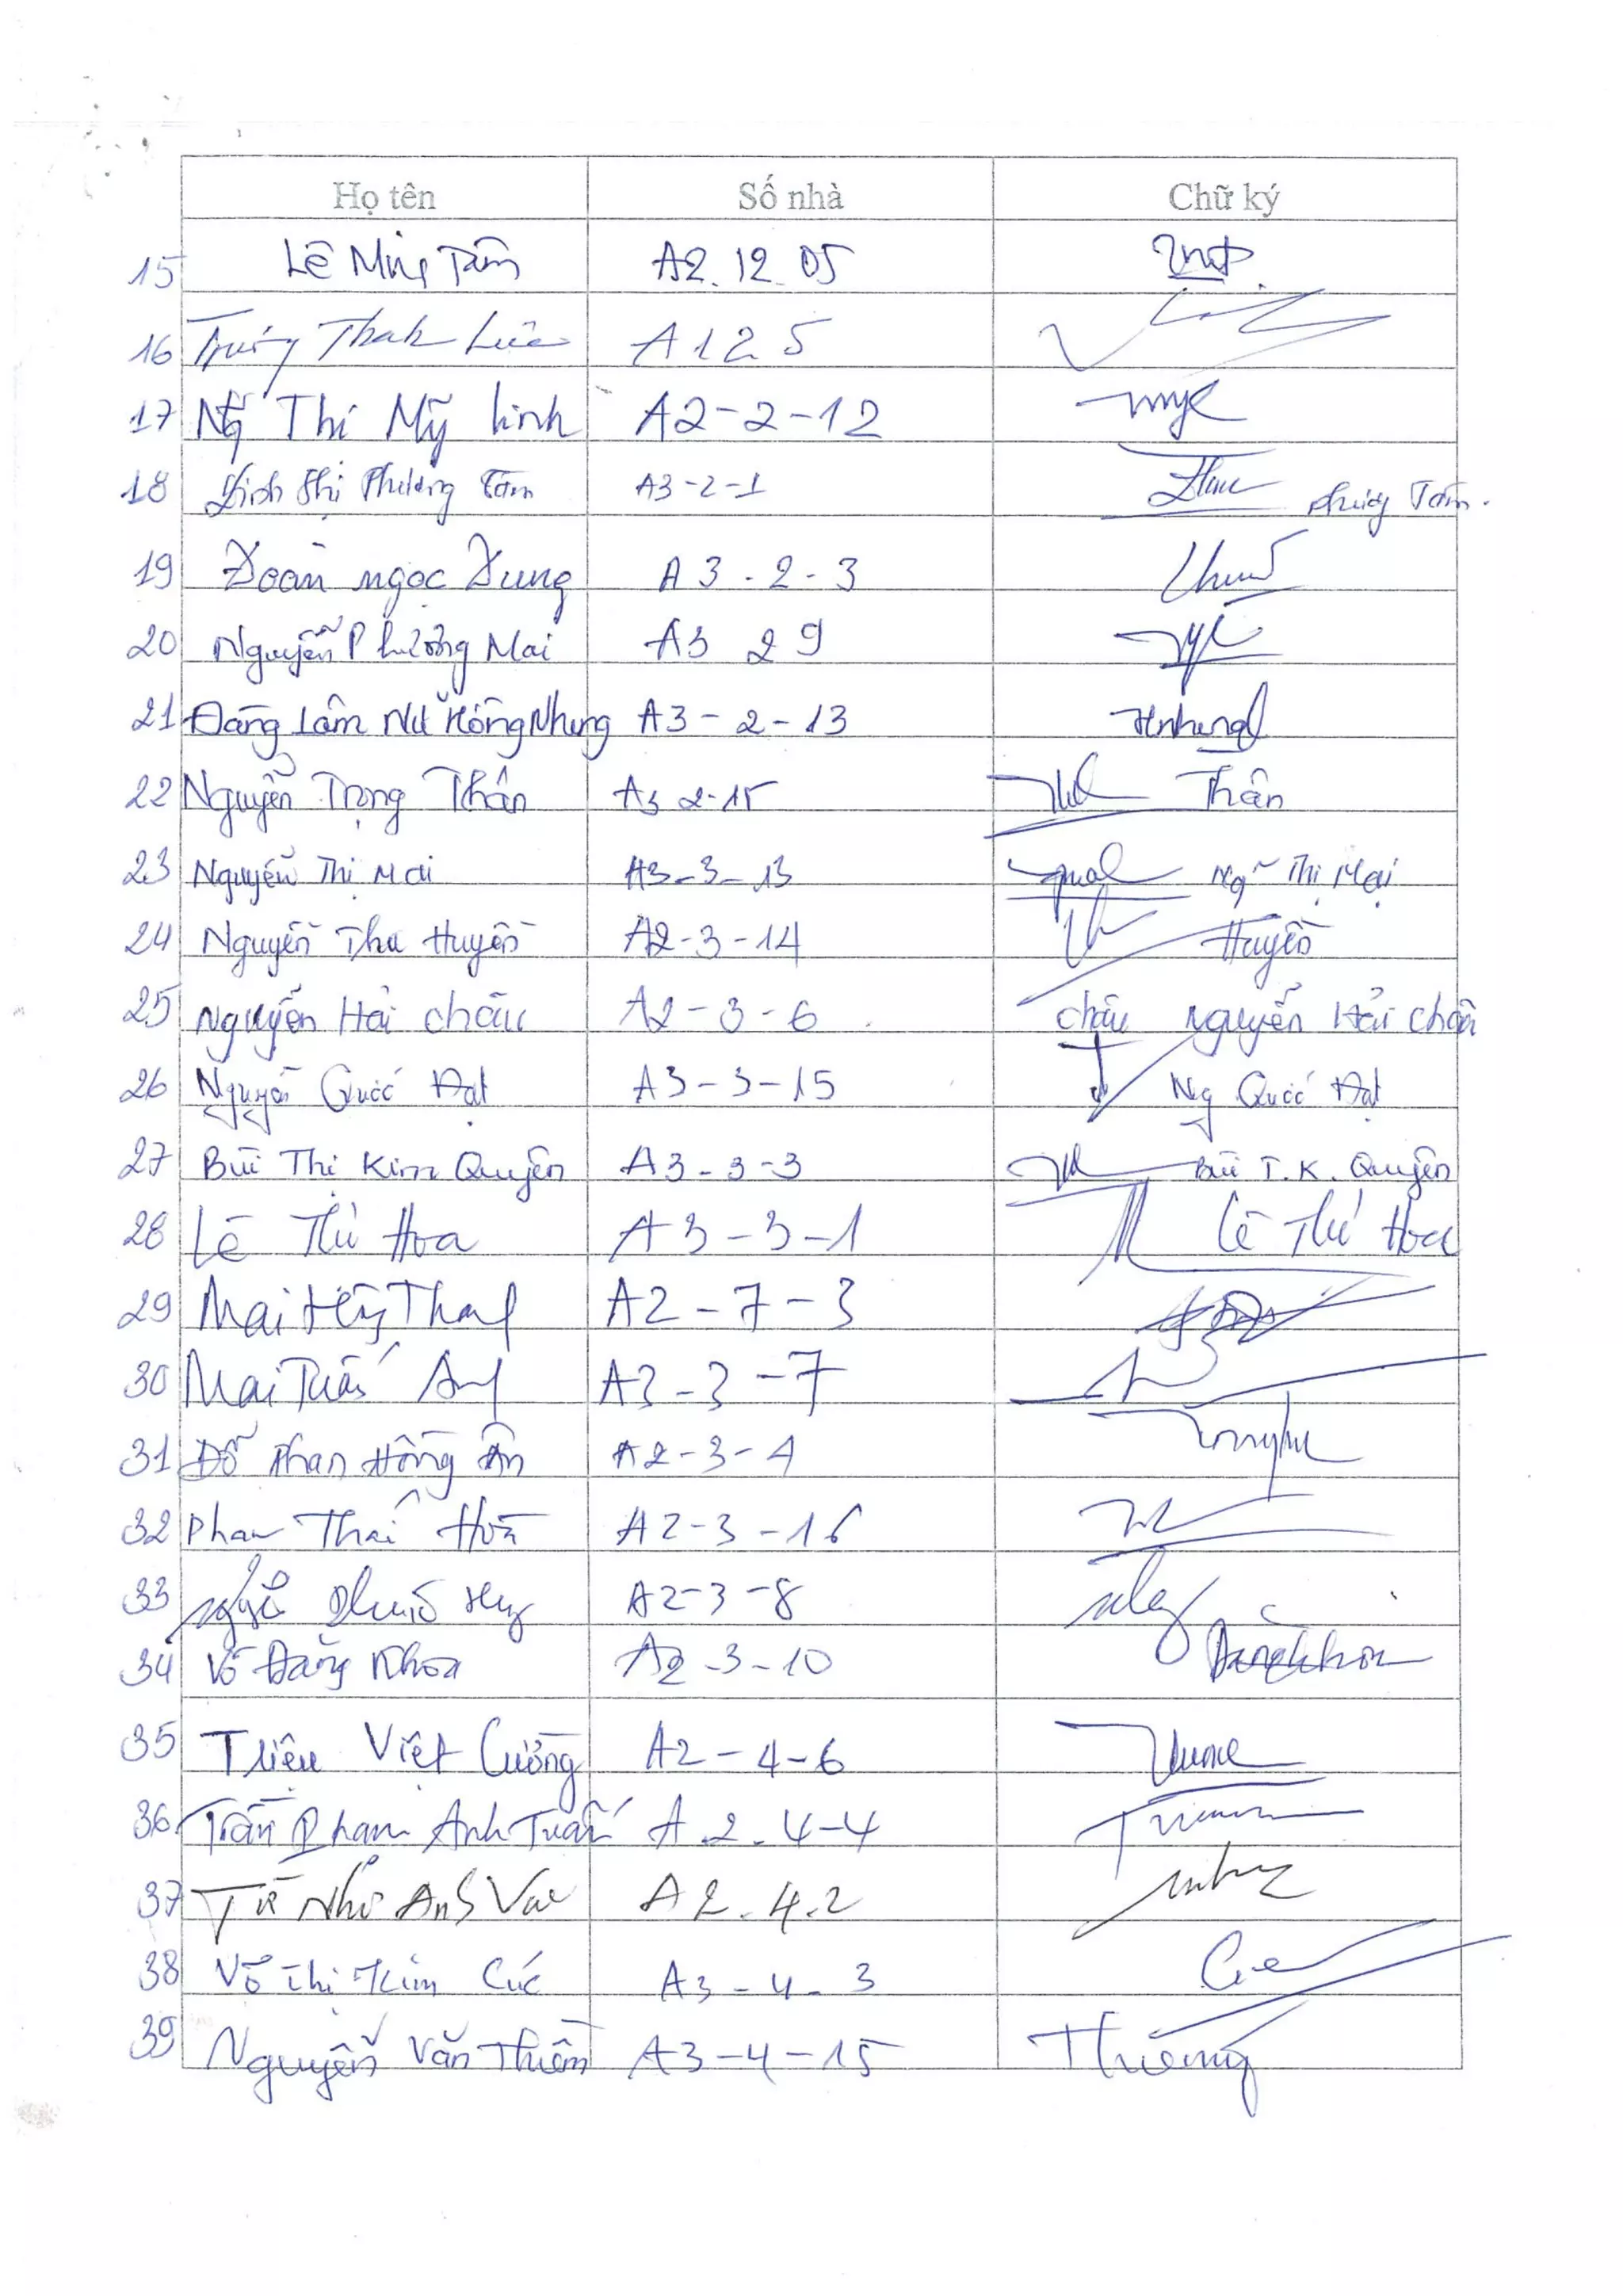 Họ tên Số nhà Chữ ký
15 Lê Minh Tâm A2.12.05
16 Trương Thanh A12 5
17 Ng Thị Mỹ Linh A2-2-12
18 Đinh Thị Phương Tâm A3-2-1 Phương Tâm.
19 Đoàn Ngọc Dung A3-2-3
20 Nguyễn Phương Mai A3 29
21 Đặng Lâm Nữ Hồng Nhung A3-2-13
22 Nguyễn Trọng Thân A3 2-15 Thân
23 Nguyễn Thị Mai A3-3-13 Ng Thị Mai
24 Nguyễn Thu Huyền A2-3-14 Huyền
25 Nguyễn Hải Châu A2-3-6 Châu Nguyễn Hải Châu
26 Nguyễn Quốc Đạt A3-3-15 Ng Quốc Đạt
27 Bùi Thị Kim Quyên A3-3-3 Bùi T.K. Quyên
28 Lê Thị Hoa A3-3-1 Lê Thị Hoa
29 Mai A2-7-3
30 Mai Tuấn Anh A3-3-7
31 Đỗ Phan Hồng Ân A2-3-4
32 Phan Thái Hoà A2-3-16
33 A2-3-8
34 Võ Đăng Khoa A2-3-10
35 Triệu Việt Cường A2-4-6
36 Trần Phạm Anh Tuấn A.2.4-4
37 A2.4.2
38 Võ Thị Kim Cúc A3-4-3
39 Nguyễn Văn A3-4-15